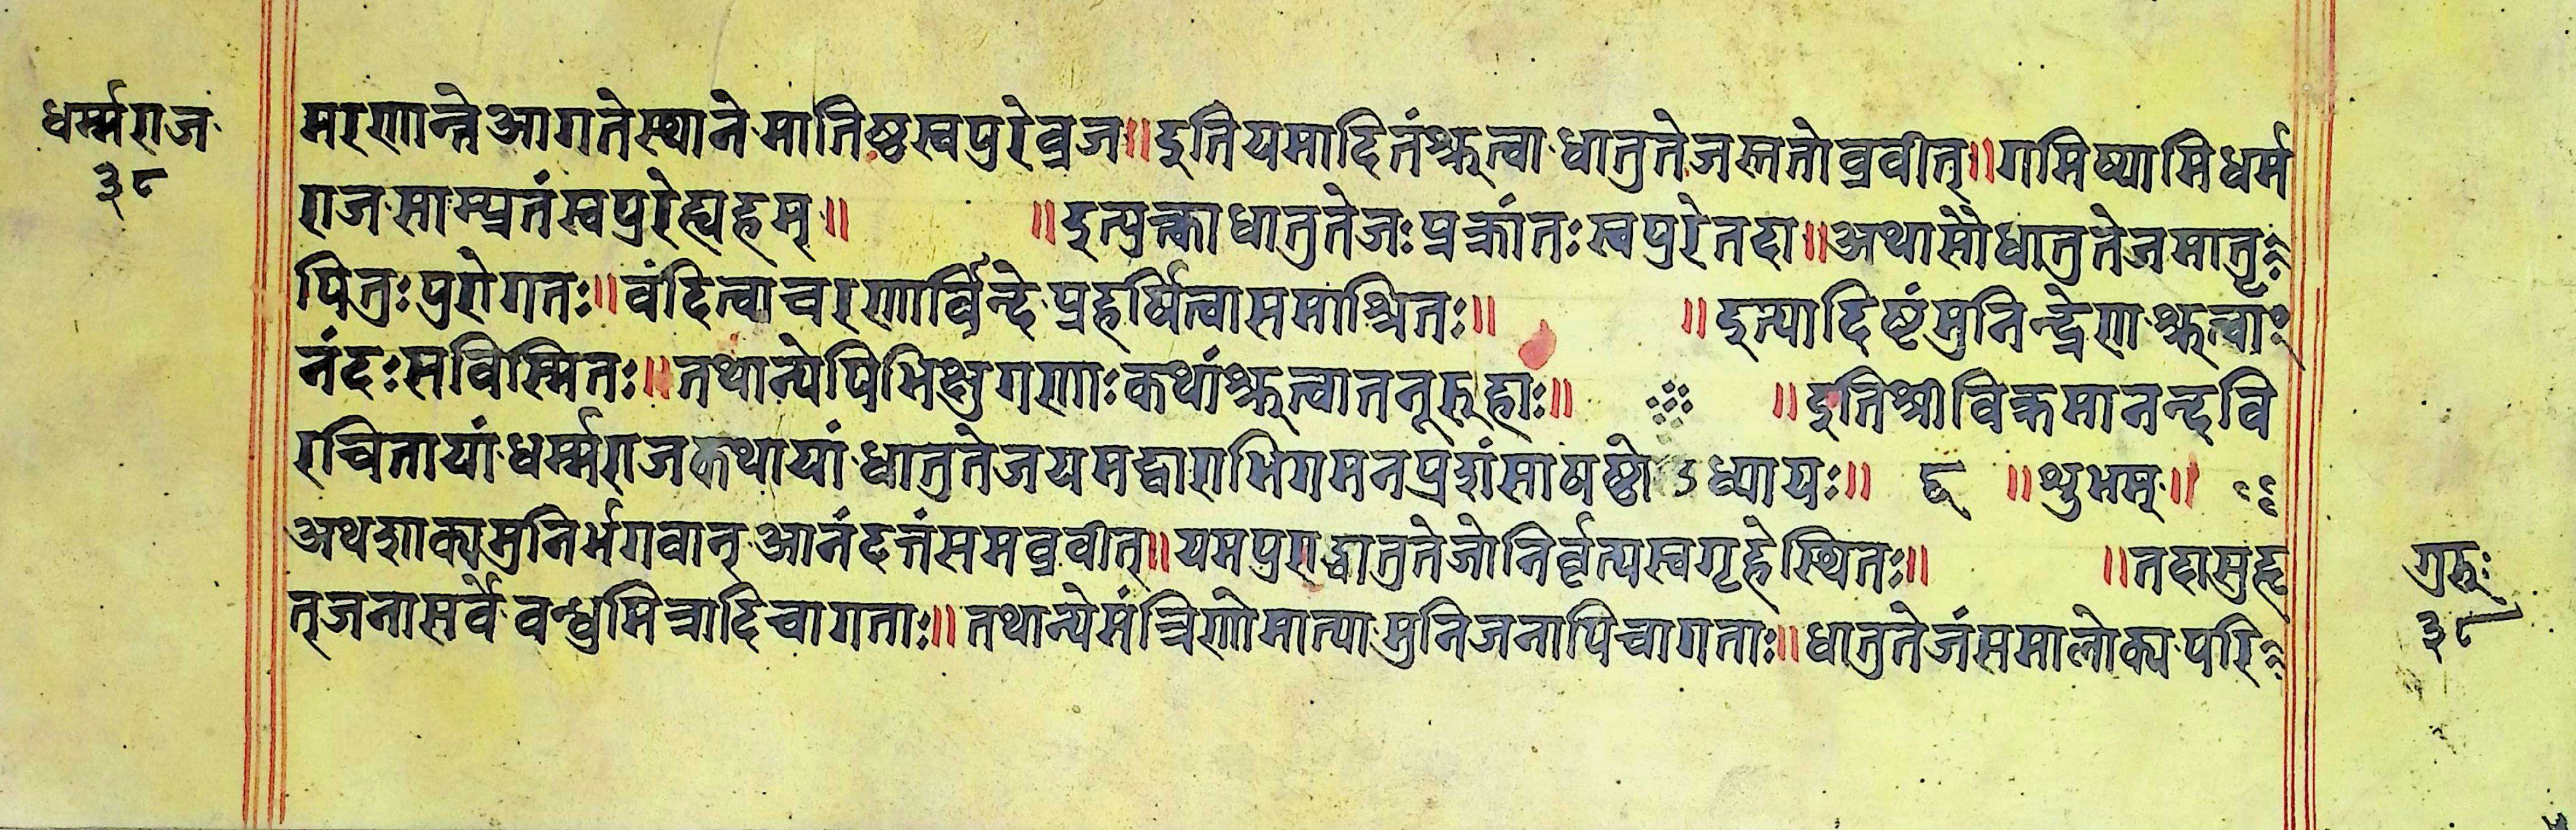 धर्म्मराज
३८
मरणान्ते आगतेस्थाने मातिष्ठस्वपुरेव्रज॥ इतियमादितंश्रुत्वा धातुतेजस्ततोव्रवीत्॥ गमिष्यामिधर्म
राज साम्प्रतंस्वपुरेह्यहम्॥ ॥ इत्युक्त्वाधातुतेजः प्रक्रांतः स्वपुरेतदा॥ अथासौधातुतेजमातृ
पितुः पुरोगतः॥ वंदित्वाचरणार्विन्दे प्रहर्षित्वासमाश्रितः॥ ॥ इत्यादिष्टंमुनिन्द्रेण श्रुत्वा
नंदः सविस्मितः॥ तथान्येपिभिक्षुगणाः कथांश्रुत्वातनूरुहाः॥ ॥ इतिश्रीविक्रमानन्दवि
रचितायां धर्म्मराजकथायां धातुतेजयमद्वाराभिगमनप्रशंसाषष्ठोऽध्यायः॥ ६ ॥ शुभम्॥
अथशाक्यमुनिर्भगवान् आनंदत्तंसमव्रवीत्॥ यमपुराद्धातुतेजोनिर्वृत्यस्वगृहेस्थितः॥ ॥ तदासुहृ
त्जनासर्वे वन्धुमित्रादिचागताः॥ तथान्येमंत्रिणोमात्या मुनिजनापिचागताः॥ धातुतेजंसमालोक्य परि
गुरुः
३८